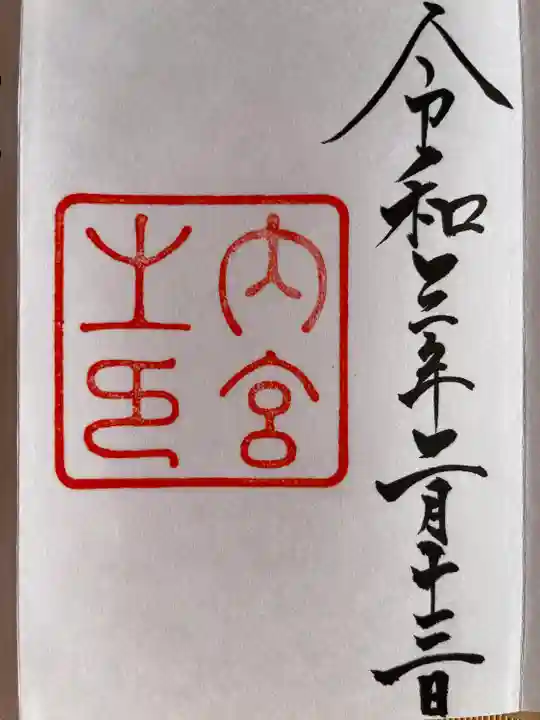 令和三年二月十三日
内宮
之印